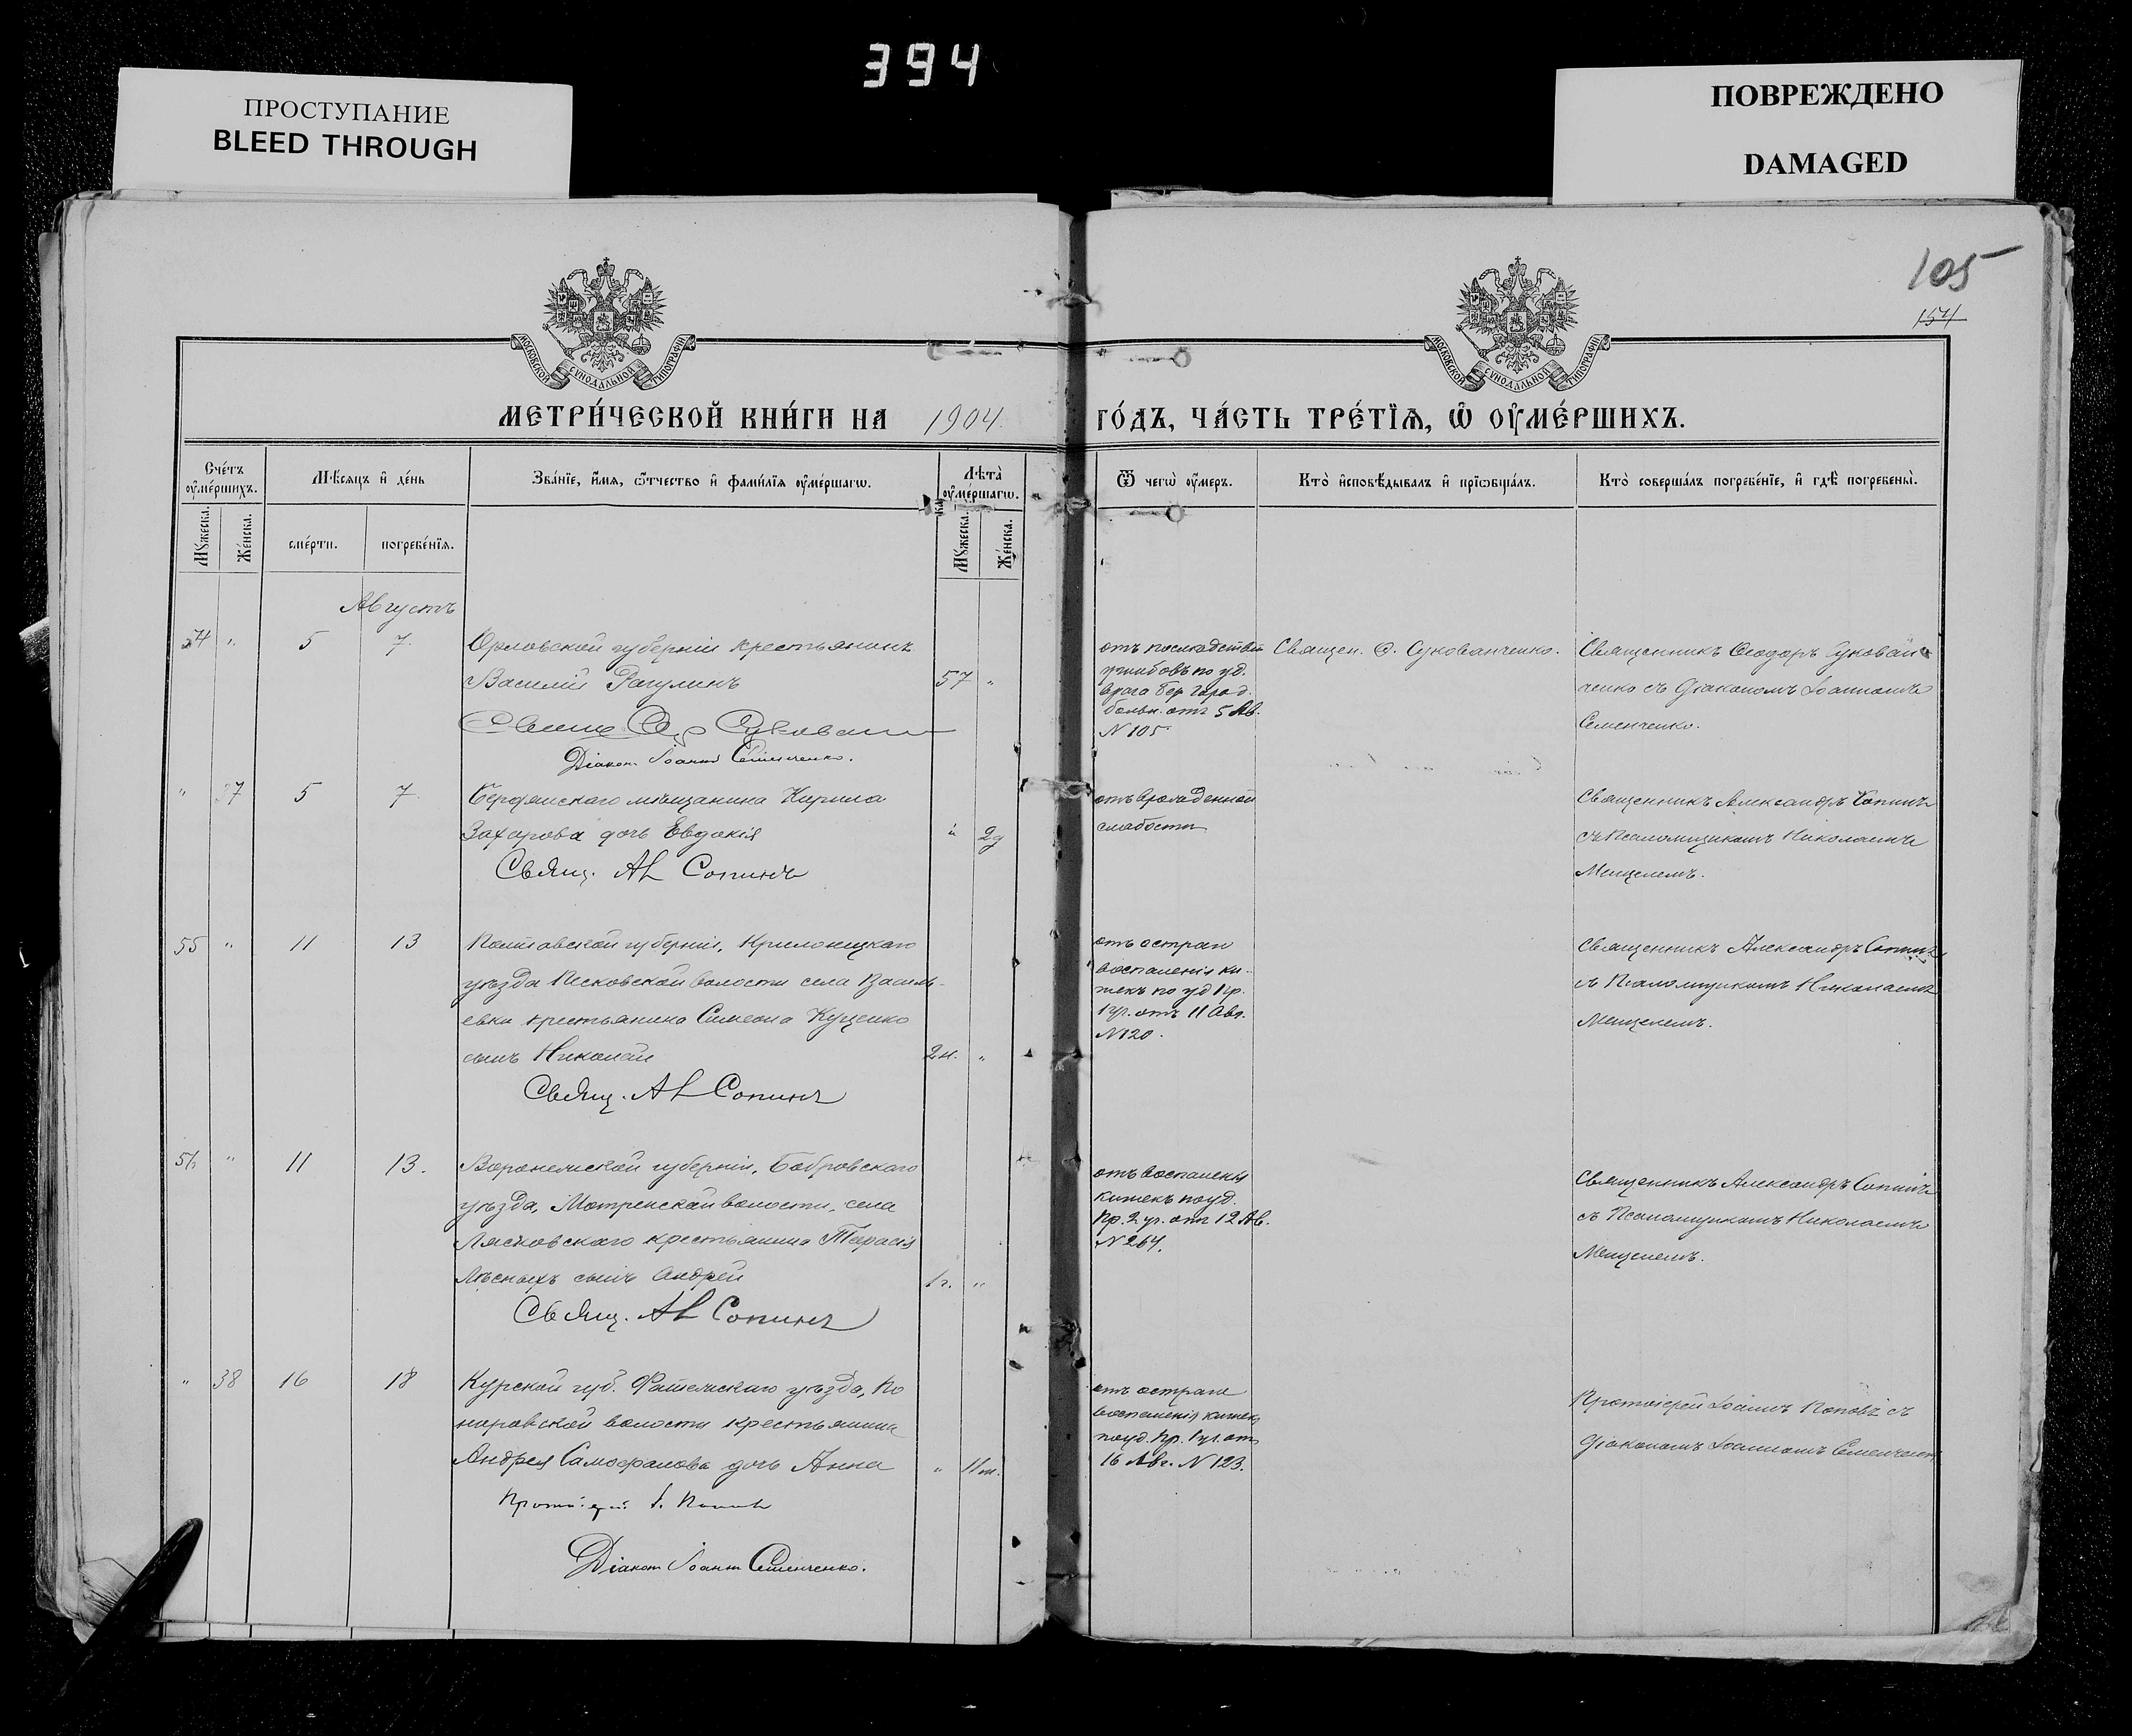 394
ПРОСТУПАНИЕ
BLEED THROUGH
ПОВРЕЖДЕНО
DAMAGED
105
154
МОСКОВСКОЙ СУНОДАЛЬНОЙ ТИПОГРАФІИ
МОСКОВСКОЙ СУНОДАЛЬНОЙ ТИПОГРАФІИ
МЕТРИ́ЧЕСКОЙ КНИ́ГИ НА 1904. ГО́ДЪ, ЧА́СТЬ ТРЕ́ТЇѦ, Ѡ҆ ОУ҆МЕ́РШИХЪ.
Сче́тъ оу҆ме́ршихъ.
Мꙋ́жеска.
Же́нска.
Мѣ́сѧцъ и҆ де́нь
сме́рти.
погребе́нїѧ.
Зва́нїе, и҆́мѧ, ѻ҆́тчество и҆ фами́лїѧ оу҆ме́ршагѡ.
Лѣта̀ оу҆ме́ршагѡ.
Мꙋ́жеска.
Же́нска.
Ѿ чегѡ̀ оу҆́меръ.
Кто̀ и҆сповѣ́дывалъ и҆ прїѡбща́лъ.
Кто̀ соверша́лъ погребе́нїе, и҆ гдѣ̀ погребены̀.
Августъ
54 " 5 7.
Орловской губерніи крестьянинъ
Василій Рагулинъ 57 "
Діакон Іоаннъ Семенченко.
отъ последствій
ушибовъ по уд.
врача Бер. город.
больн. отъ 5 Ав.
N 105.
Священ. Ѳ. Сукованченко.
Священникъ Ѳеодоръ Сукован
ченко съ Діакономъ Іоанномъ
Семенченко.
" 37 5 7
Бердянскаго мѣщанина Кирила
Захарова дочь Евдокія " 2д
Свящ. Ал Сопинъ
отъ врожденной
слабости
Священникъ Александръ Сопинъ
съ Псаломщикомъ Николаемъ
Менцелемъ.
55 " 11 13
Полтавской губерніи,
уѣзда Песковской волости села Василь-
евки крестьянина Симеона Куценко
сынъ Николай 2н. "
Свящ. Ал Сопинъ
отъ остраго
воспаленія ки-
шекъ по уд Пр.
1 уч. отъ 11 Авг.
N 120.
Священникъ Александръ Сопинъ
съ Псаломщикомъ Николаемъ
Менцелемъ.
56 " 11 13.
Воронежской губерніи, Бобровскаго
уѣзда, волости, села
крестьянина Тарасія
Лѣсныхъ сынъ Андрей 1г. "
Свящ. Ал Сопинъ
отъ воспаленія
кишекъ по уд.
Пр. 2 уч. отъ 12 Ав.
N 264.
Священникъ Александръ Сопинъ
съ Псаломщикомъ Николаемъ
Менцелемъ.
" 38 16 18
Курской губ. Фатежскаго уѣзда, По
ныровской волости крестьянина
Андрея Самофалова дочь Анна " 11м.
Протоіерей І. Поповъ
Діакон Іоанн Семенченко.
отъ остраго
воспаленія кишек
по уд. Пр. 1 уч. отъ
16 Авг. N 123.
Протоіерей Іоаннъ Поповъ съ
Діакономъ Іоанномъ Семенченко